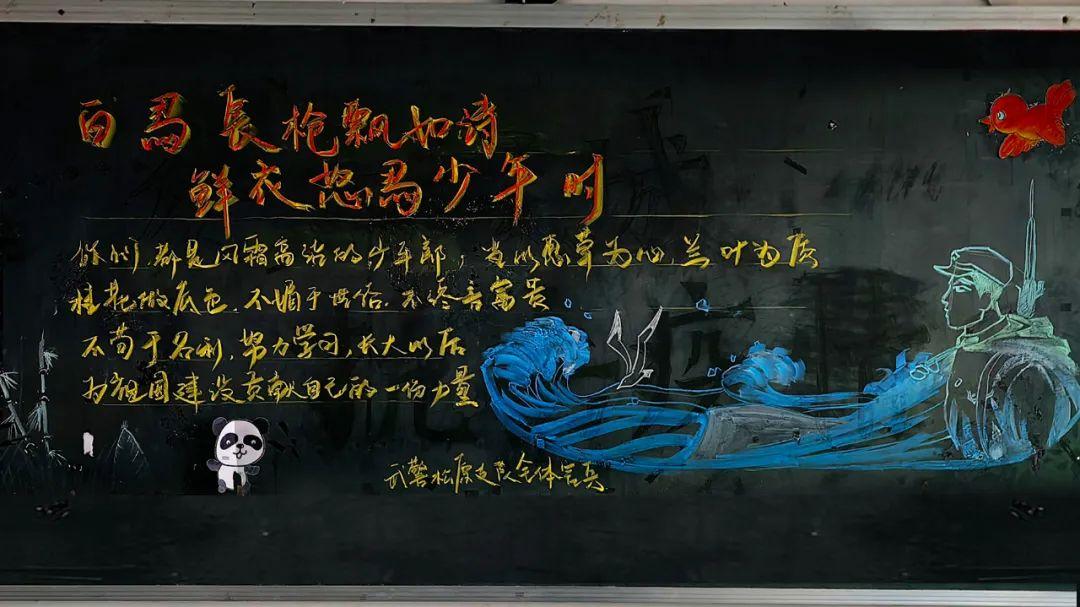 白马长枪飘如诗
鲜衣怒马少年时
你们都是风霜高洁的少年郎，当以蕙草为心，兰叶为质
桂花做底色，不媚于世俗，不沾吝富贵。
不苟于名利，努力学习，长大以后
为祖国建设贡献自己的一份力量
武警松原支队全体官兵